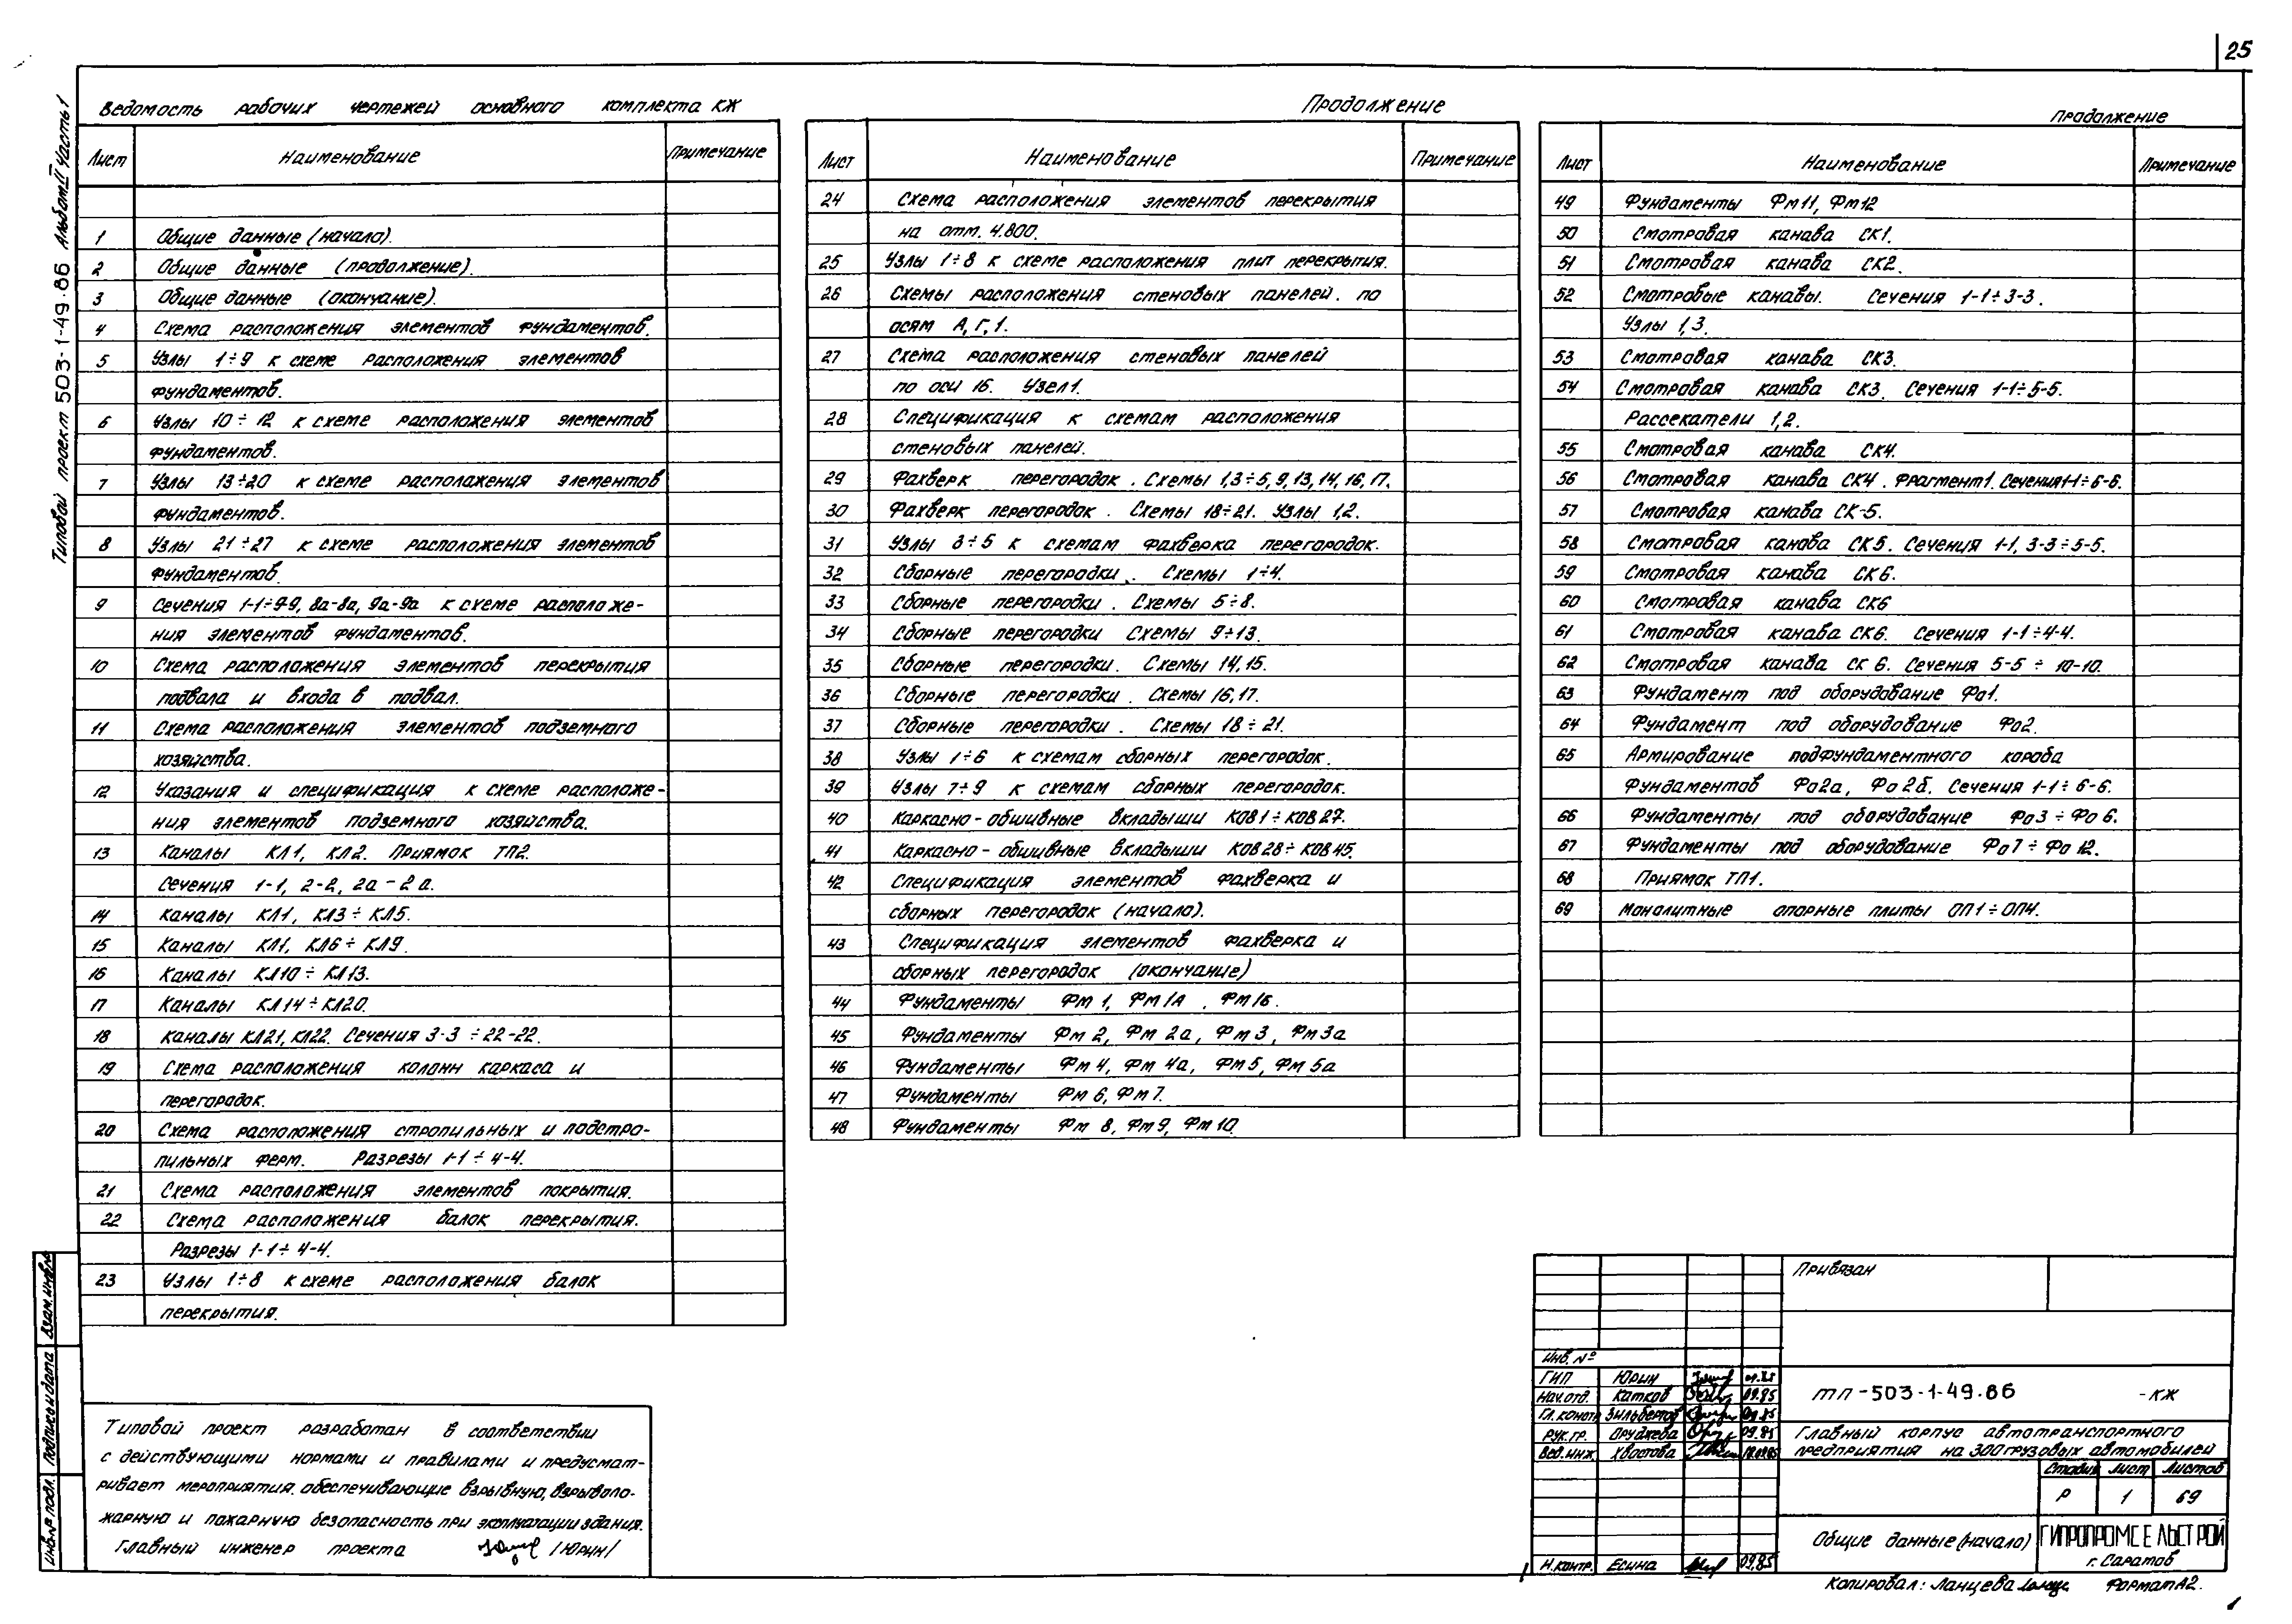 25
Типовой проект 503-1-49.86 Альбом II Часть 1
Ведомость рабочих чертежей основного комплекта КЖ
Лист Наименование Примечание
1 Общие данные (начало).
2 Общие данные (продолжение).
3 Общие данные (окончание).
4 Схема расположения элементов фундаментов.
5 Узлы 1÷9 к схеме расположения элементов
фундаментов.
6 Узлы 10÷12 к схеме расположения элементов
фундаментов.
7 Узлы 13÷20 к схеме расположения элементов
фундаментов.
8 Узлы 21÷27 к схеме расположения элементов
фундаментов.
9 Сечения 1-1÷9-9, 8а-8а, 9а-9а к схеме расположе-
ния элементов фундаментов.
10 Схема расположения элементов перекрытия
подвала и входа в подвал.
11 Схема расположения элементов подземного
хозяйства.
12 Указания и спецификация к схеме расположе-
ния элементов подземного хозяйства.
13 Каналы КЛ1, КЛ2. Приямок ТП2.
Сечения 1-1, 2-2, 2а-2а.
14 Каналы КЛ1, КЛ3÷КЛ5.
15 Каналы КЛ1, КЛ6÷КЛ9.
16 Каналы КЛ10÷КЛ13.
17 Каналы КЛ14÷КЛ20.
18 Каналы КЛ21, КЛ22. Сечения 3-3÷22-22.
19 Схема расположения колонн каркаса и
перегородок.
20 Схема расположения стропильных и подстро-
пильных ферм. Разрезы 1-1÷4-4.
21 Схема расположения элементов покрытия.
22 Схема расположения балок перекрытия.
Разрезы 1-1÷4-4.
23 Узлы 1÷8 к схеме расположения балок
перекрытия.
Продолжение
Лист Наименование Примечание
24 Схема расположения элементов перекрытия
на отм. 4.800.
25 Узлы 1÷8 к схеме расположения плит перекрытия.
26 Схемы расположения стеновых панелей. по
осям А, Г, 1.
27 Схема расположения стеновых панелей
по оси 16. Узел 1.
28 Спецификация к схемам расположения
стеновых панелей.
29 Фахверк перегородок. Схемы 1,3÷5, 9, 13, 14, 16, 17.
30 Фахверк перегородок. Схемы 18÷21. Узлы 1,2.
31 Узлы 3÷5 к схемам фахверка перегородок.
32 Сборные перегородки. Схемы 1÷4.
33 Сборные перегородки. Схемы 5÷8.
34 Сборные перегородки Схемы 9÷13.
35 Сборные перегородки. Схемы 14, 15.
36 Сборные перегородки. Схемы 16, 17.
37 Сборные перегородки. Схемы 18÷21.
38 Узлы 1÷6 к схемам сборных перегородок.
39 Узлы 7÷9 к схемам сборных перегородок.
40 Каркасно-обшивные вкладыши КОВ1÷КОВ27.
41 Каркасно-обшивные вкладыши КОВ28÷КОВ45.
42 Спецификация элементов фахверка и
сборных перегородок (начало).
43 Спецификация элементов фахверка и
сборных перегородок (окончание)
44 Фундаменты Фм 1, Фм1А, Фм1б.
45 Фундаменты Фм 2, Фм 2а, Фм 3, Фм 3а
46 Фундаменты Фм 4, Фм 4а, Фм 5, Фм 5а
47 Фундаменты Фм 6, Фм 7.
48 Фундаменты Фм 8, Фм 9, Фм 10
Продолжение
Лист Наименование Примечание
49 Фундаменты Фм11, Фм12
50 Смотровая канава СК1.
51 Смотровая канава СК2.
52 Смотровые канавы. Сечения 1-1÷3-3.
Узлы 1,3.
53 Смотровая канава СК3.
54 Смотровая канава СК3. Сечения 1-1÷5-5.
Рассекатели 1,2.
55 Смотровая канава СК4.
56 Смотровая канава СК4. Фрагмент 1. Сечения 1-1÷6-6.
57 Смотровая канава СК-5.
58 Смотровая канава СК5. Сечения 1-1, 3-3÷5-5.
59 Смотровая канава СК6.
60 Смотровая канава СК6
61 Смотровая канава СК6. Сечения 1-1÷4-4.
62 Смотровая канава СК 6. Сечения 5-5÷10-10.
63 Фундамент под оборудование Фо1.
64 Фундамент под оборудование Фо2.
65 Армирование подфундаментного короба
Фундаментов Фо2а, Фо2б. Сечения 1-1÷6-6.
66 Фундаменты под оборудование Фо3÷Фо 6.
67 Фундаменты под оборудование Фо7÷Фо 12.
68 Приямок ТП1.
69 Монолитные опорные плиты ОП1÷ОП4.
Типовой проект разработан в соответствии
с действующими нормами и правилами и предусмат-
ривает мероприятия, обеспечивающие взрывную, взрывопо-
жарную и пожарную безопасность при эксплуатации здания.
Главный инженер проекта /Юрин/
Взам. инв.№
Подпись и дата
Инв.№ подл.
Привязан
Инв. №
ГИП Юрин 09.85
Нач.отд. Катков 09.85
Гл. констр Зильбертов 09.85
Рук.гр. Оруджева 09.85
Вед.инж. Хвостова
Н.контр. Есина 09.85
ТП-503-1-49.86 -КЖ
Главный корпус автотранспортного
предприятия на 300 грузовых автомобилей
Стадия Лист Листов
Р 1 69
Общие данные (начало)
ГИПРОПРОМСЕЛЬСТРОЙ
г. Саратов
Копировал: Ланцева Формат А2.